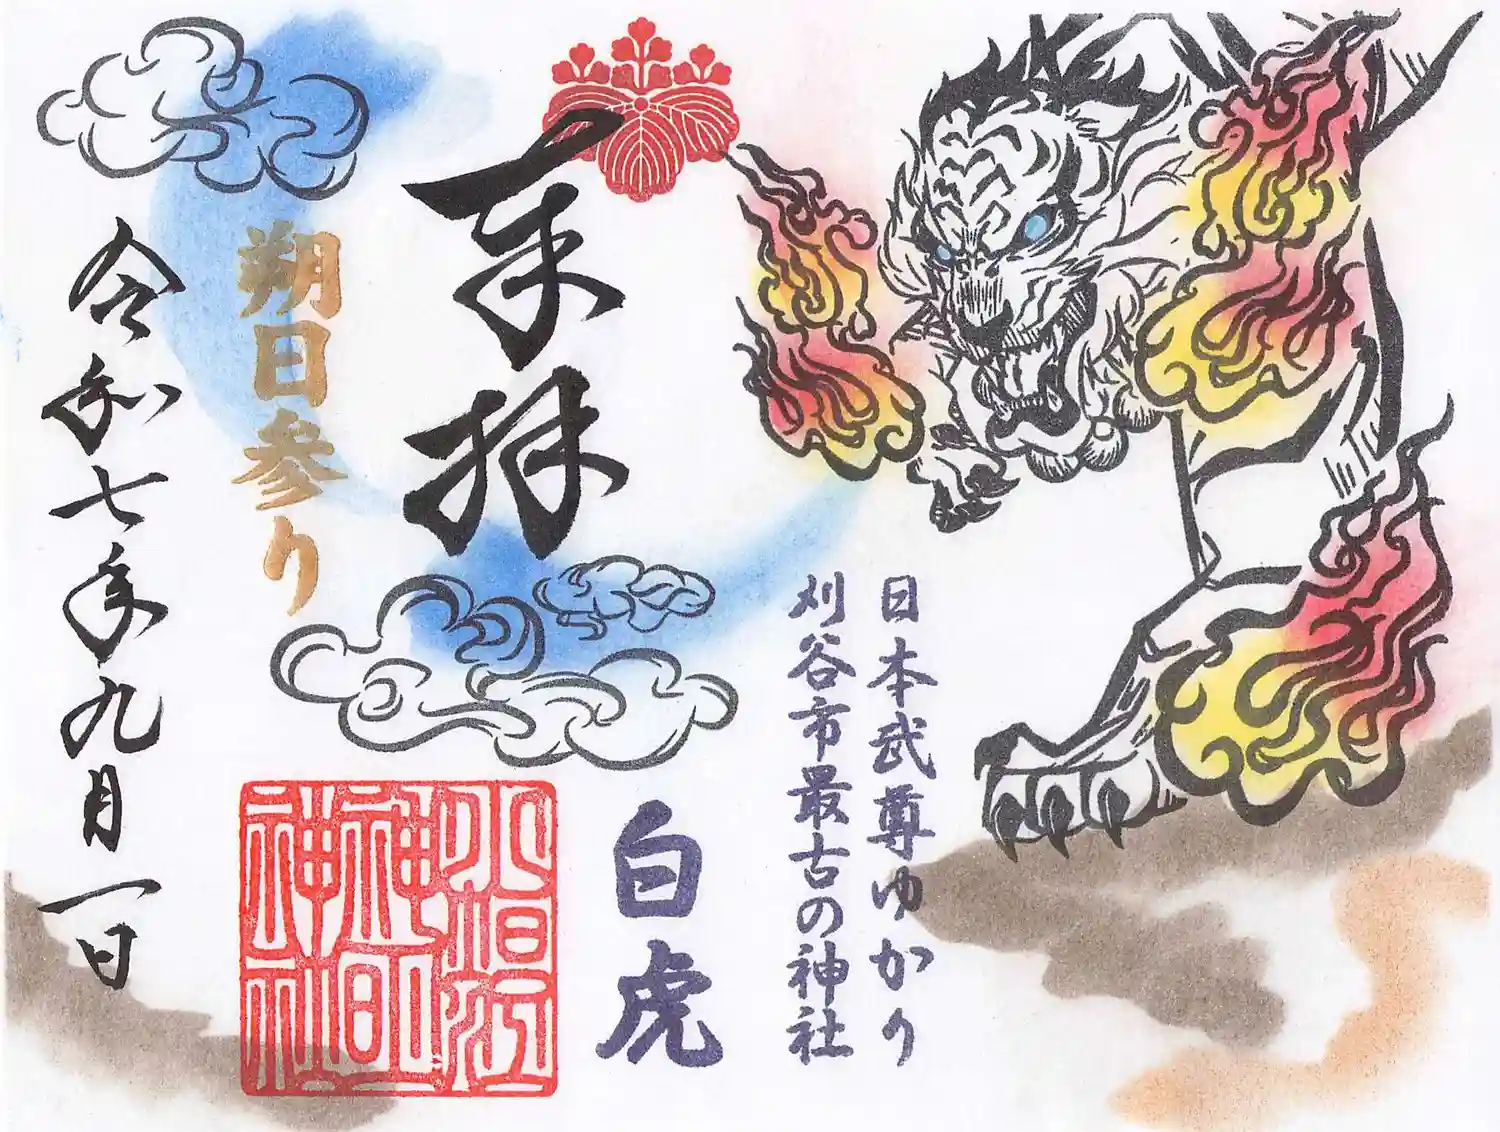 日本武尊ゆかり
刈谷市最古の神社
白虎
奉拝
朔日参り
令和七年九月一日